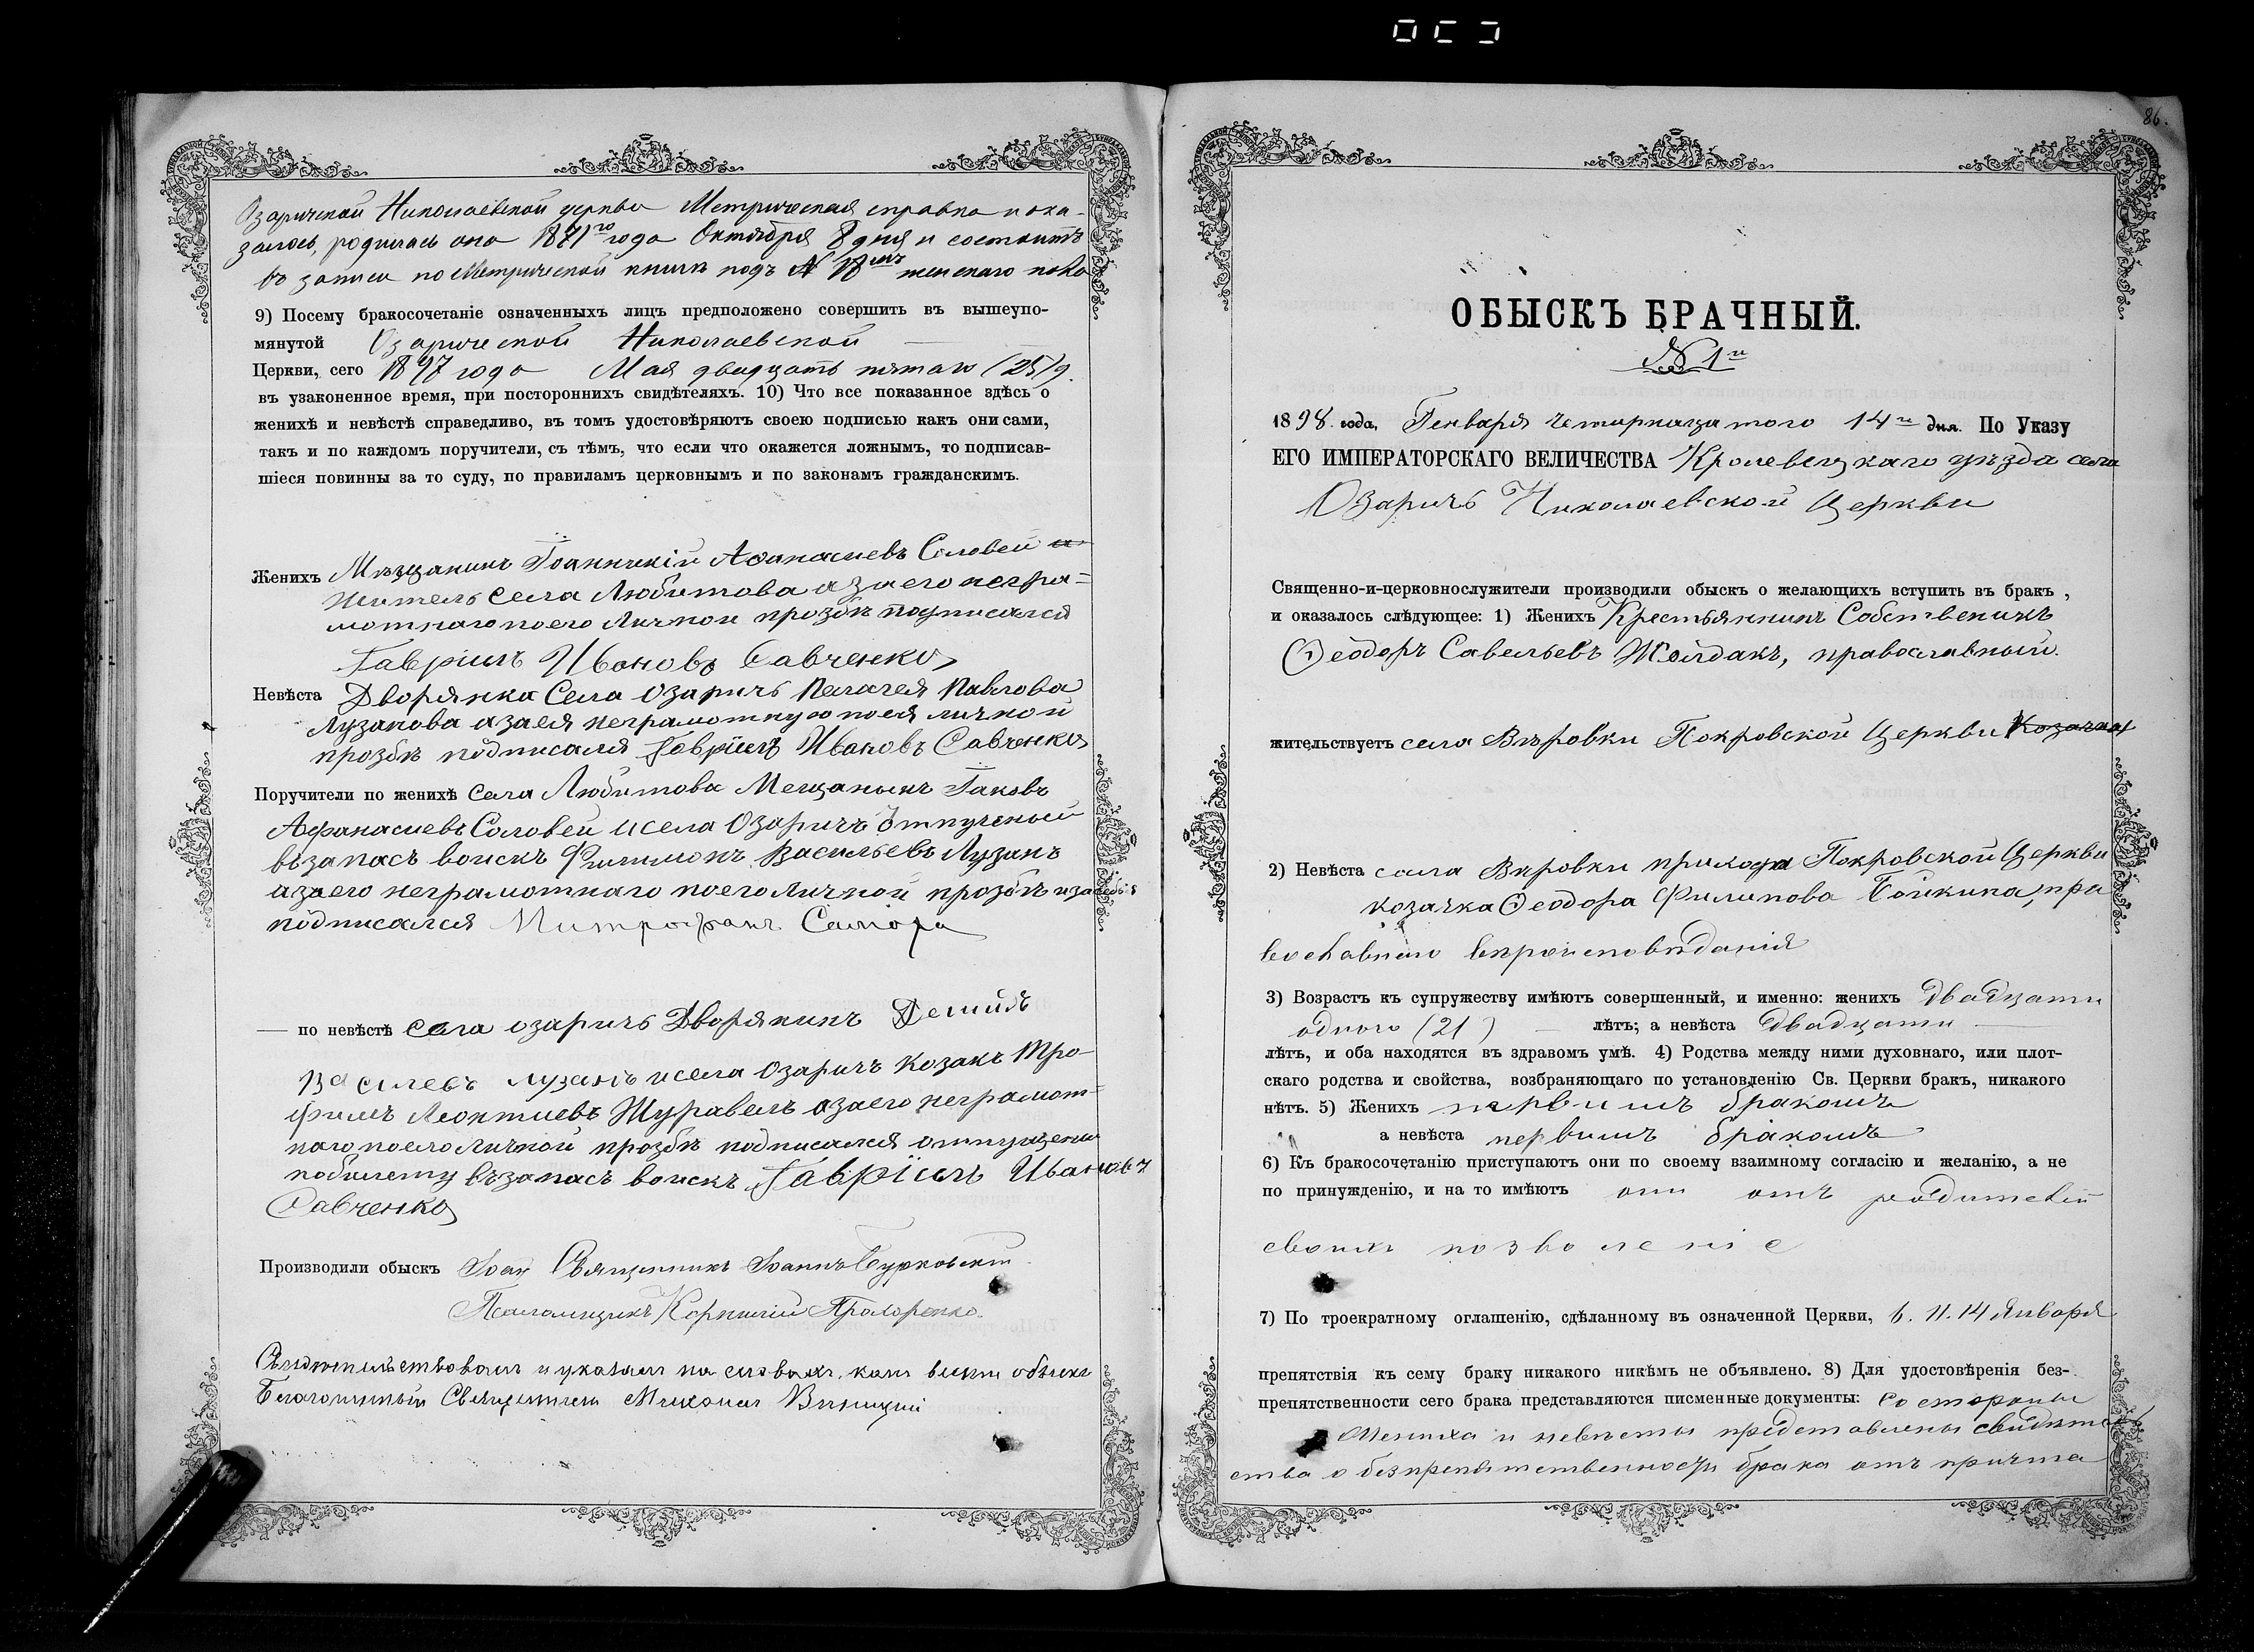 Озаричской Николаевской церкви Метрическая справка и ока-
залось, родилась она 1871го года Октября 8 дня и состоитъ
въ записи по Метрической книгѣ подъ № женскаго пола
9) Посему бракосочетаніе означенныхъ лицъ предположено совершить въ вышеупо-
мянутой Озарической Николаевской
Церкви, сего 1897 года Мая двадцать пятаго (25) д.
въ узаконенное время, при постороннихъ свидѣтеляхъ. 10) Что все показанное здѣсь о
женихѣ и невѣстѣ справедливо, въ томъ удостовѣряютъ своею подписью какъ они сами,
такъ и по каждомъ поручители, съ тѣмъ, что если что окажется ложнымъ, то подписав-
шіеся повинны за то суду, по правиламъ церковнымъ и по законамъ гражданскимъ.
Женихъ Мѣщанинъ Іоанникій Аѳанасиевъ Соловей
житель села Любитова а за его негра-
мотнаго по его личной прозбѣ подписался
Гавріилъ Ивановъ Савченко
Невѣста Дворянка Села Озаричъ Пелагея Павлова
Лузанова а за ея неграмотную по ея личной
прозбѣ подписался Гавріилъ Ивановъ Савченко
Поручители по женихѣ села Любитова Мещанынъ Іаковъ
Афанасиевъ Соловей и села Озаричъ отпученый
въ запасъ войскъ Филимонъ Васильевъ Лузанъ
а за его неграмотнаго по его личной прозбѣ и за себя
подписался Митрофанъ
— по невѣстѣ села озаричъ Дворянинъ
Василевъ лузанъ и села Озаричъ Козакъ Тро-
фимъ Леонтиевъ Журавель а за его неграмот-
наго по его личной прозбѣ подписался отпущены
по билету въ запасъ войскъ Гавріилъ Ивановъ
Савченко
Производили обыскъ Священникъ Іоаннъ Бурковскій
Псаломщикъ Корнилій Прохоренко.
Благочинный Священникъ Михаилъ
86.
ОБЫСКЪ БРАЧНЫЙ.
№ 1й
1898. года, Генваря четырнацатого 14го дня. По Указу
ЕГО ИМПЕРАТОРСКАГО ВЕЛИЧЕСТВА Кролевецкаго уѣзда села
Озаричъ Николаевской Церкви
Священно-и-церковнослужители производили обыскъ о желающихъ вступить въ бракъ ,
и оказалось слѣдующее: 1) Женихъ Крестьянинъ Собственикъ
Ѳеодоръ Савельевъ Жолдакъ, православный.
жительствуетъ села Вѣровки Покровской Церкви Козачка
2) Невѣста села Вировки прихода Покровской Церкви
козачка Ѳеодора Филипова Бойкина, пра
вославнаго вѣроисповѣданія
3) Возрастъ къ супружеству имѣютъ совершенный, и именно: женихъ Двадцати
одного (21) — лѣтъ; а невѣста двадцати
лѣтъ, и оба находятся въ здравомъ умѣ. 4) Родства между ними духовнаго, или плот-
скаго родства и свойства, возбраняющаго по установленію Св. Церкви бракъ, никакого
нѣтъ. 5) Женихъ первымъ бракомъ
а невѣста первымъ бракомъ
6) Къ бракосочетанію приступаютъ они по своему взаимному согласію и желанію, а не
по принужденію, и на то имѣютъ они отъ родителей
своихъ позволеніе
7) По троекратному оглашенію, сдѣланному въ означенной Церкви, 6. 11. 14 Января
препятствія къ сему браку никакого никѣмъ не объявлено. 8) Для удостовѣренія без-
препятственности сего брака представляются писменные документы: Со стороны
Жениха и невѣсты представлены свидѣтель
ства о безпрепятственности брака отъ причта